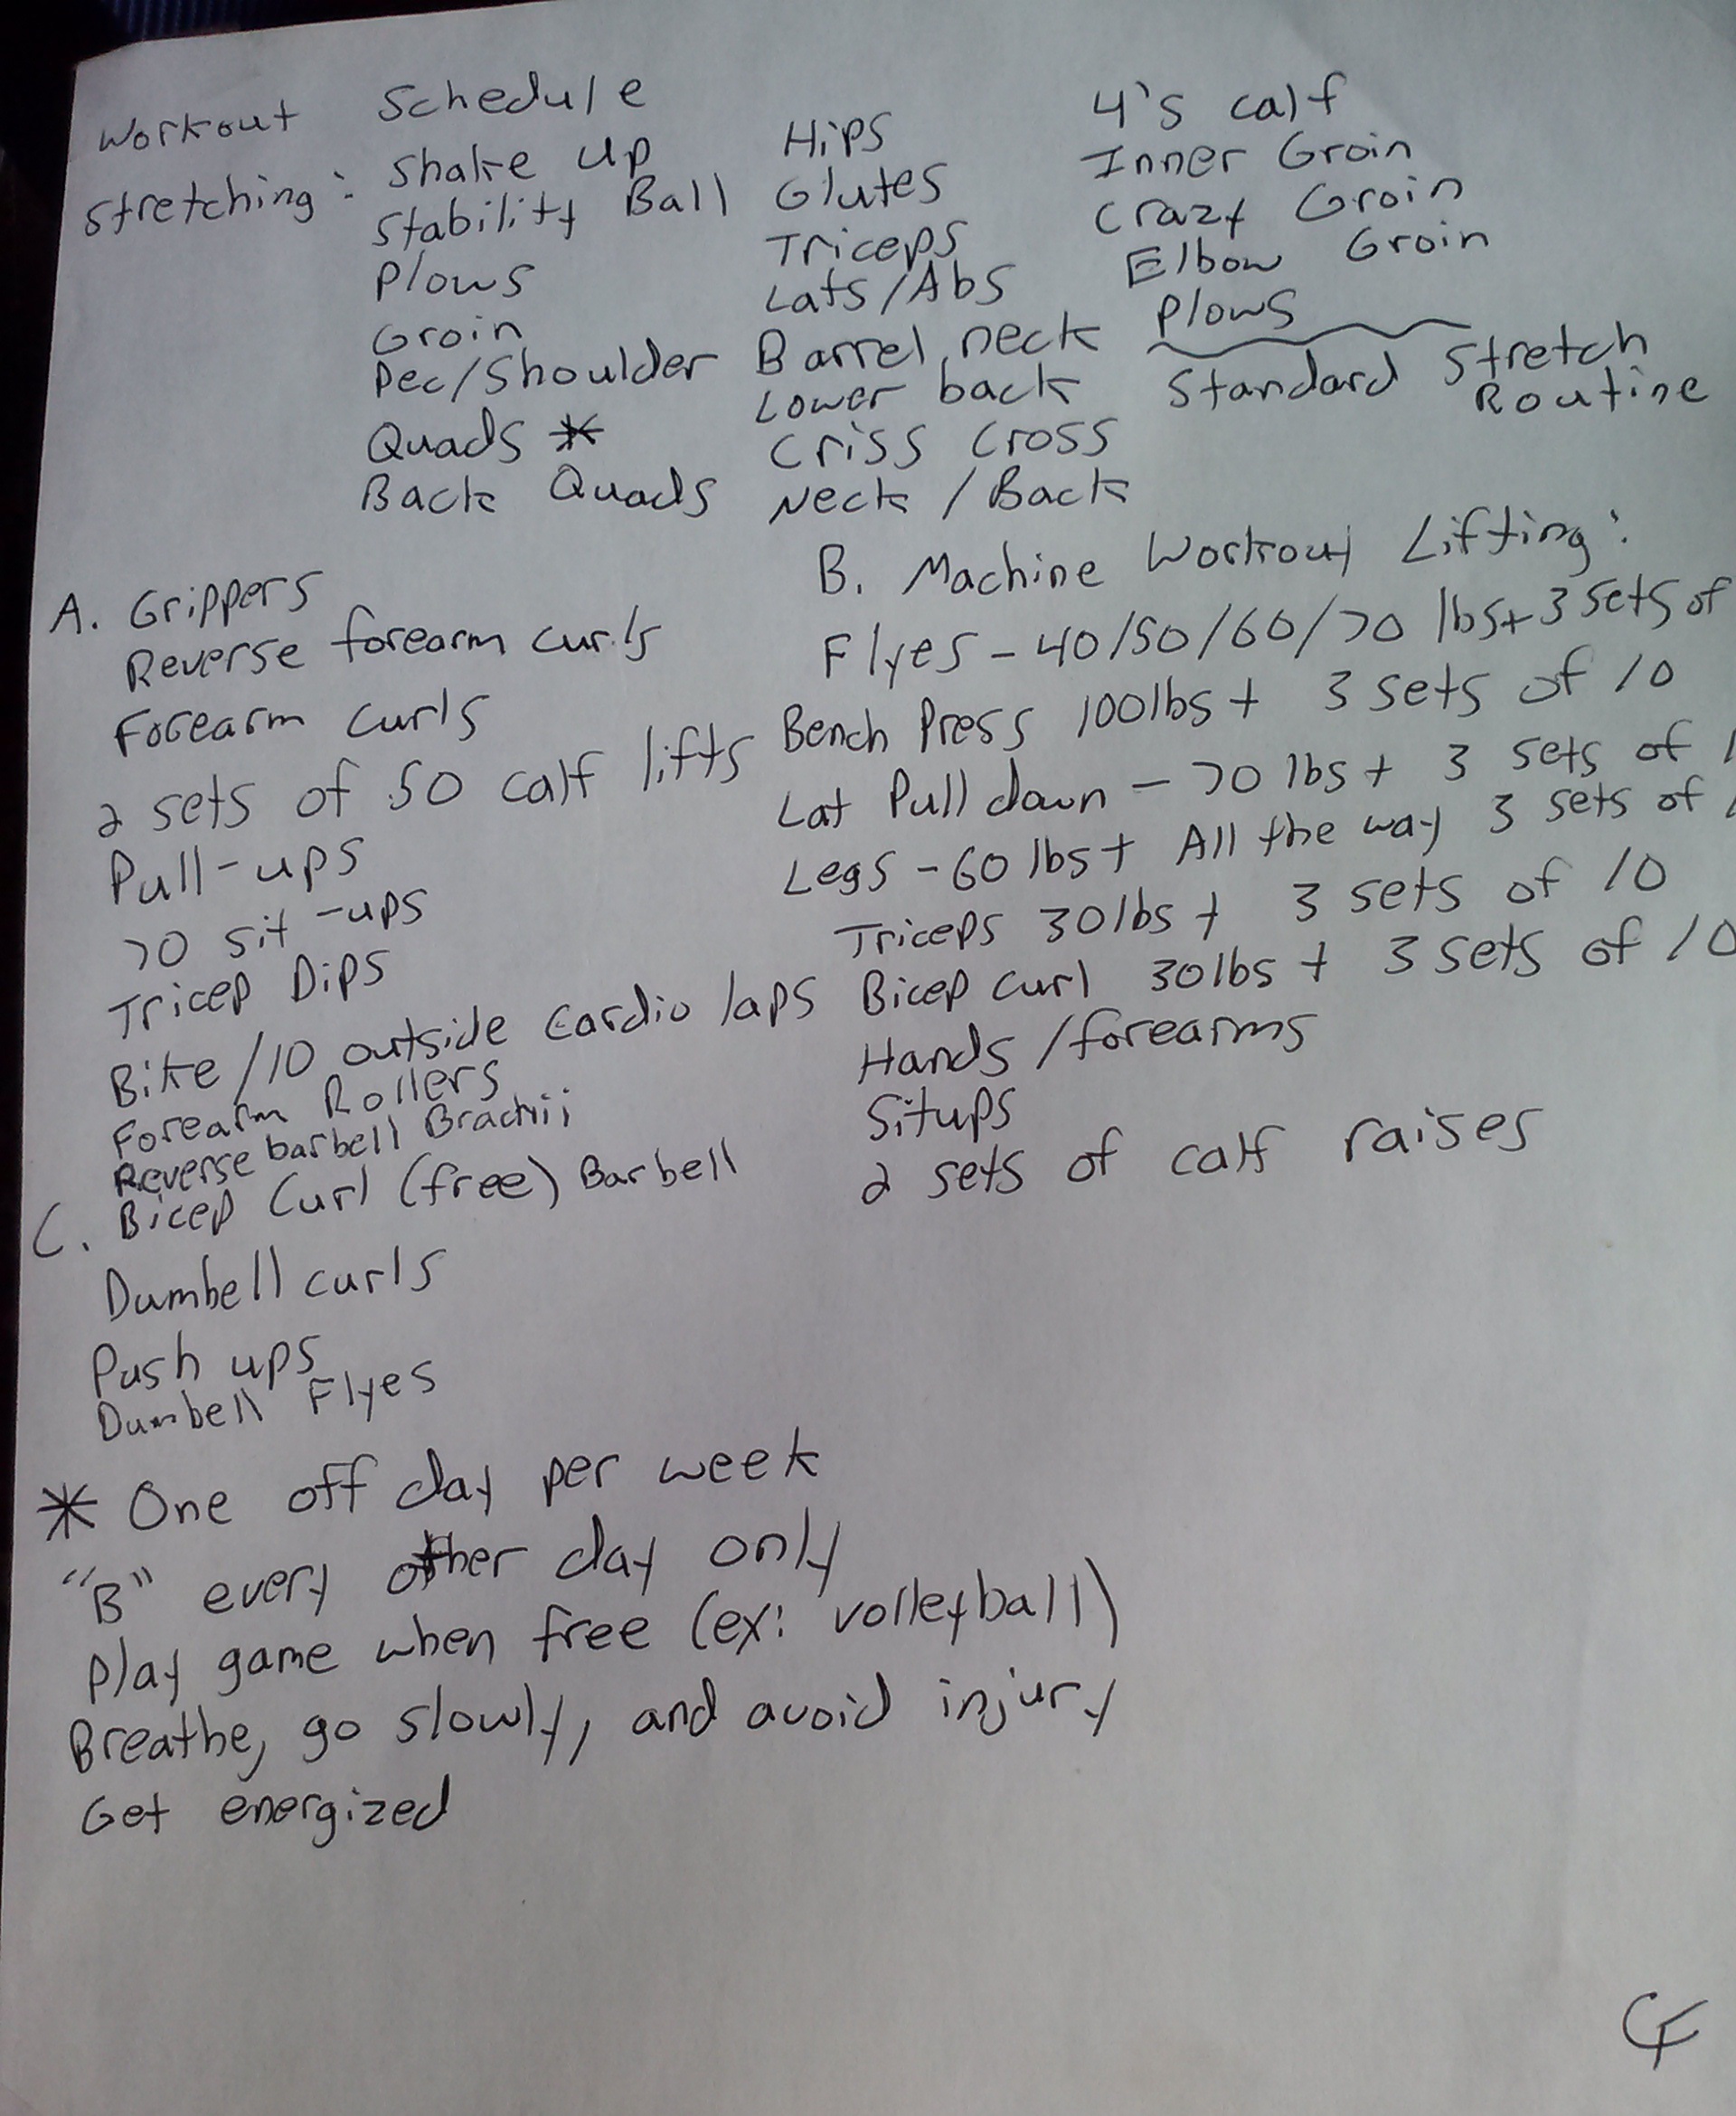 Workout Schedule
Stretching: Shake up
Stability Ball
Plows
Groin
Pec/Shoulder
Quads *
Back Quads
Hips
Glutes
Triceps
Lats/Abs
Barrel neck
Lower back
Criss Cross
Neck/Back
4's calf
Inner Groin
Crazy Groin
Elbow Groin
Plows
Standard Stretch
Routine
A. Grippers
Reverse forearm curls
Forearm curls
2 sets of 50 calf lifts
Pull-ups
70 sit-ups
Tricep Dips
Bike/10 outside cardio laps
Forearm Rollers
Reverse barbell Brachii
B. Machine Workout Lifting:
Flyes - 40/50/60/70 lbs+ 3 sets of
Bench Press 100lbs+ 3 sets of 10
Lat Pull down - 70 lbs+ 3 sets of
Legs - 60 lbs+ All the way 3 sets of
Triceps 30lbs+ 3 sets of 10
Bicep Curl 30lbs+ 3 sets of 10
Hands/forearms
Situps
2 sets of calf raises
C. Bicep Curl (free) Barbell
Dumbell curls
Push ups
Dumbell Flyes
* One off day per week
"B" every other day only
Play game when free (ex: volleyball)
Breathe, go slowly, and avoid injury
Get energized